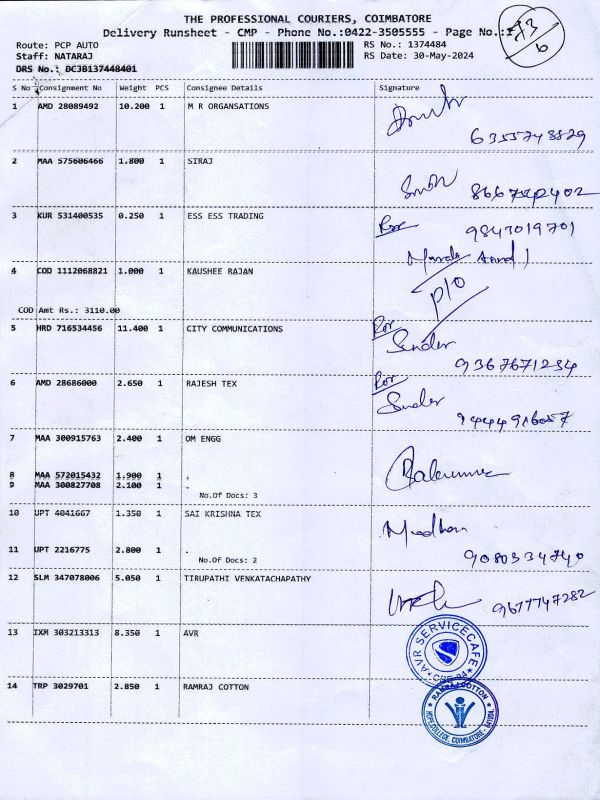 THE PROFESSIONAL COURIERS, COIMBATORE
Delivery Runsheet - CMP - Phone No.:0422-3505555 - Page No.:
Route: PCP AUTO
Staff: NATARAJ
DRS No.: DCJB137448401
RS No.: 1374484
RS Date: 30-May-2024
S No Consignment No Weight PCS Consignee Details Signature
1 AMD 28089492 10.200 1 M R ORGANSATIONS
2 MAA 575606466 1.800 1 SIRAJ
3 KUR 531400535 0.250 1 ESS ESS TRADING
9843019701
4 COD 1112068821 1.000 1 KAUSHEE RAJAN
P/O
COD Amt Rs.: 3110.00
5 HRD 716534456 11.400 1 CITY COMMUNICATIONS
Sunder
9367671234
6 AMD 28686000 2.650 1 RAJESH TEX
Sunder
7 MAA 300915763 2.400 1 OM ENGG
8 MAA 572015432 1.900 1 .
9 MAA 300827708 2.100 1 .
No.Of Docs: 3
10 UPT 4041667 1.350 1 SAI KRISHNA TEX
Madhan
9080334740
11 UPT 2216775 2.800 1 .
No.Of Docs: 2
12 SLM 347078006 5.050 1 TIRUPATHI VENKATACHAPATHY
9677747282
13 IXM 303213313 8.350 1 AVR
AVR SERVICECAFE
14 TRP 3029701 2.850 1 RAMRAJ COTTON
RAMRAJ COTTON
HOPE COLLEGE, COIMBATORE